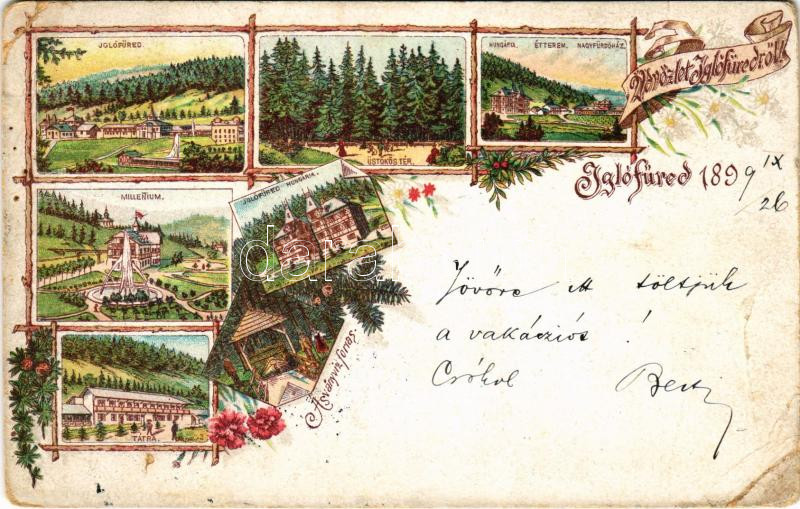 JGLÓFÜRED.
ÜSTÖKÖS TÉR.
HUNGÁRIA. ÉTTEREM. NAGYFÜRDŐHÁZ.
Üdvözlet Iglófüredről!
Iglófüred 1899 IX
26
MILLENIUM.
JGLÓFÜRED HUNGÁRIA.
darabanth
Ásványvíz forrás.
TÁTRA.
Jövőre itt töltjük
a vakácziót !
Csókol Berti